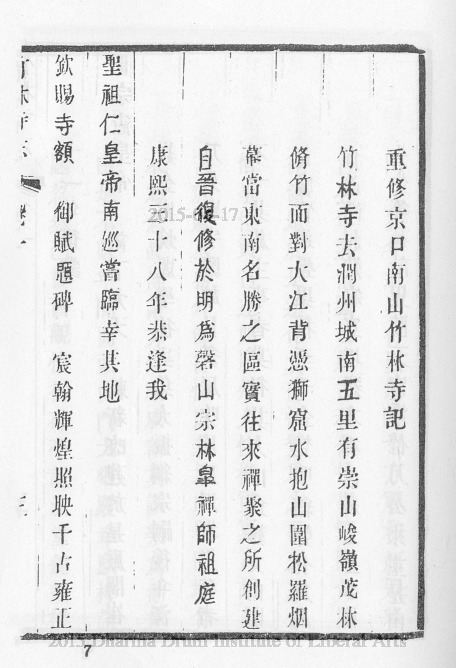 重修京口南山竹林寺記
竹林寺去潤州城南五里有崇山峻嶺茂林
脩竹而對大江背憑獅窟水抱山圍松羅烟
幕當東南名勝之區實往來禪聚之所創建
自晉復修於明爲磬山宗林皋禪師祖庭
康熙三十八年恭逢我
聖祖仁皇帝南巡嘗臨幸其地
欽賜寺額 御賦題碑 宸翰輝煌照映千古雍正
竹林寺志 卷一 三
7
2015 Dharma Drum Institute of Liberal Arts